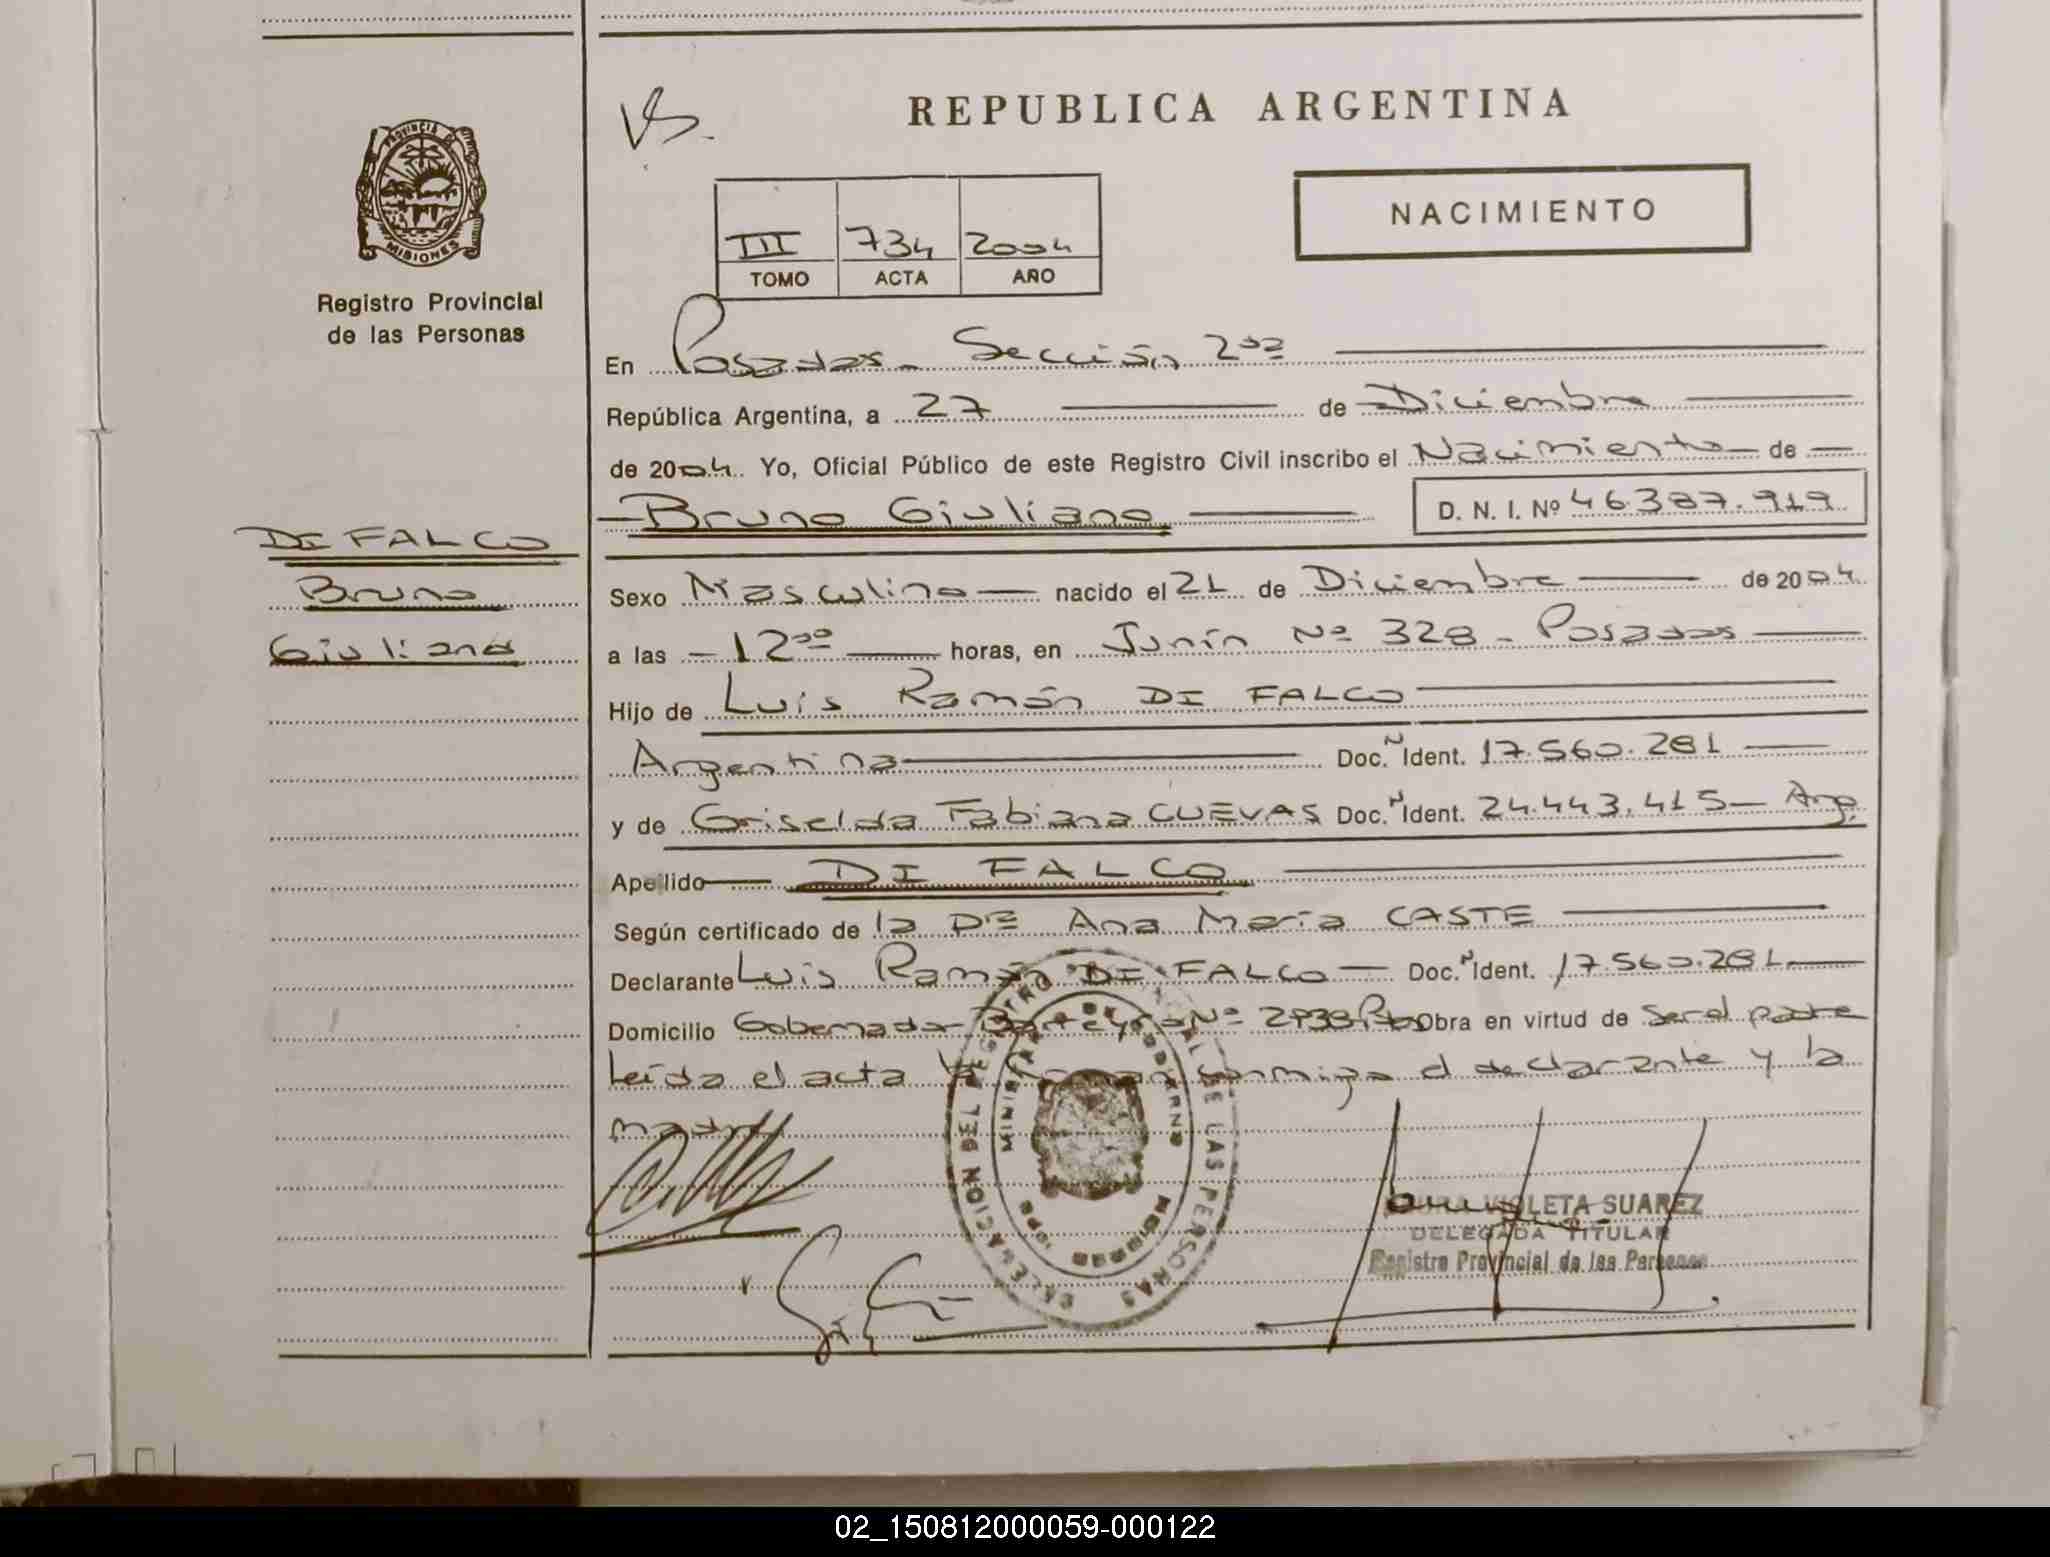 REPUBLICA ARGENTINA
NACIMIENTO
PROVINCIA DE
MISIONES
Registro Provincial
de las Personas
III 734 2004
TOMO ACTA AÑO
En Posadas - Sección 2da
República Argentina, a 27 de Diciembre
de 2004. Yo, Oficial Público de este Registro Civil inscribo el Nacimiento de
Bruno Giuliano D. N. I. Nº 46.387.919
DI FALCO
Bruno
Giuliano
Sexo Masculino nacido el 21 de Diciembre de 2004
a las 1200 horas, en Junín Nº 328 - Posadas
Hijo de Luis Ramón DI FALCO
Argentina Doc. Ident. 17.560.281
y de Griselda Fabiana CUEVAS Doc. Ident. 24.443.415 - Arg.
Apellido DI FALCO
Según certificado de la Dra Ana María CASTE
Declarante Luis Ramón DI FALCO Doc. Ident. 17.560.281
Domicilio Gobernador Barreyro Nº Obra en virtud de ser el padre
Leída el acta conmigo el declarante y la
madre
DELEGACION DEL REGISTRO PROVINCIAL DE LAS PERSONAS
MINISTERIO DE GOBIERNO
VIOLETA SUAREZ
DELEGADA TITULAR
Registro Provincial de las Personas
02_150812000059-000122